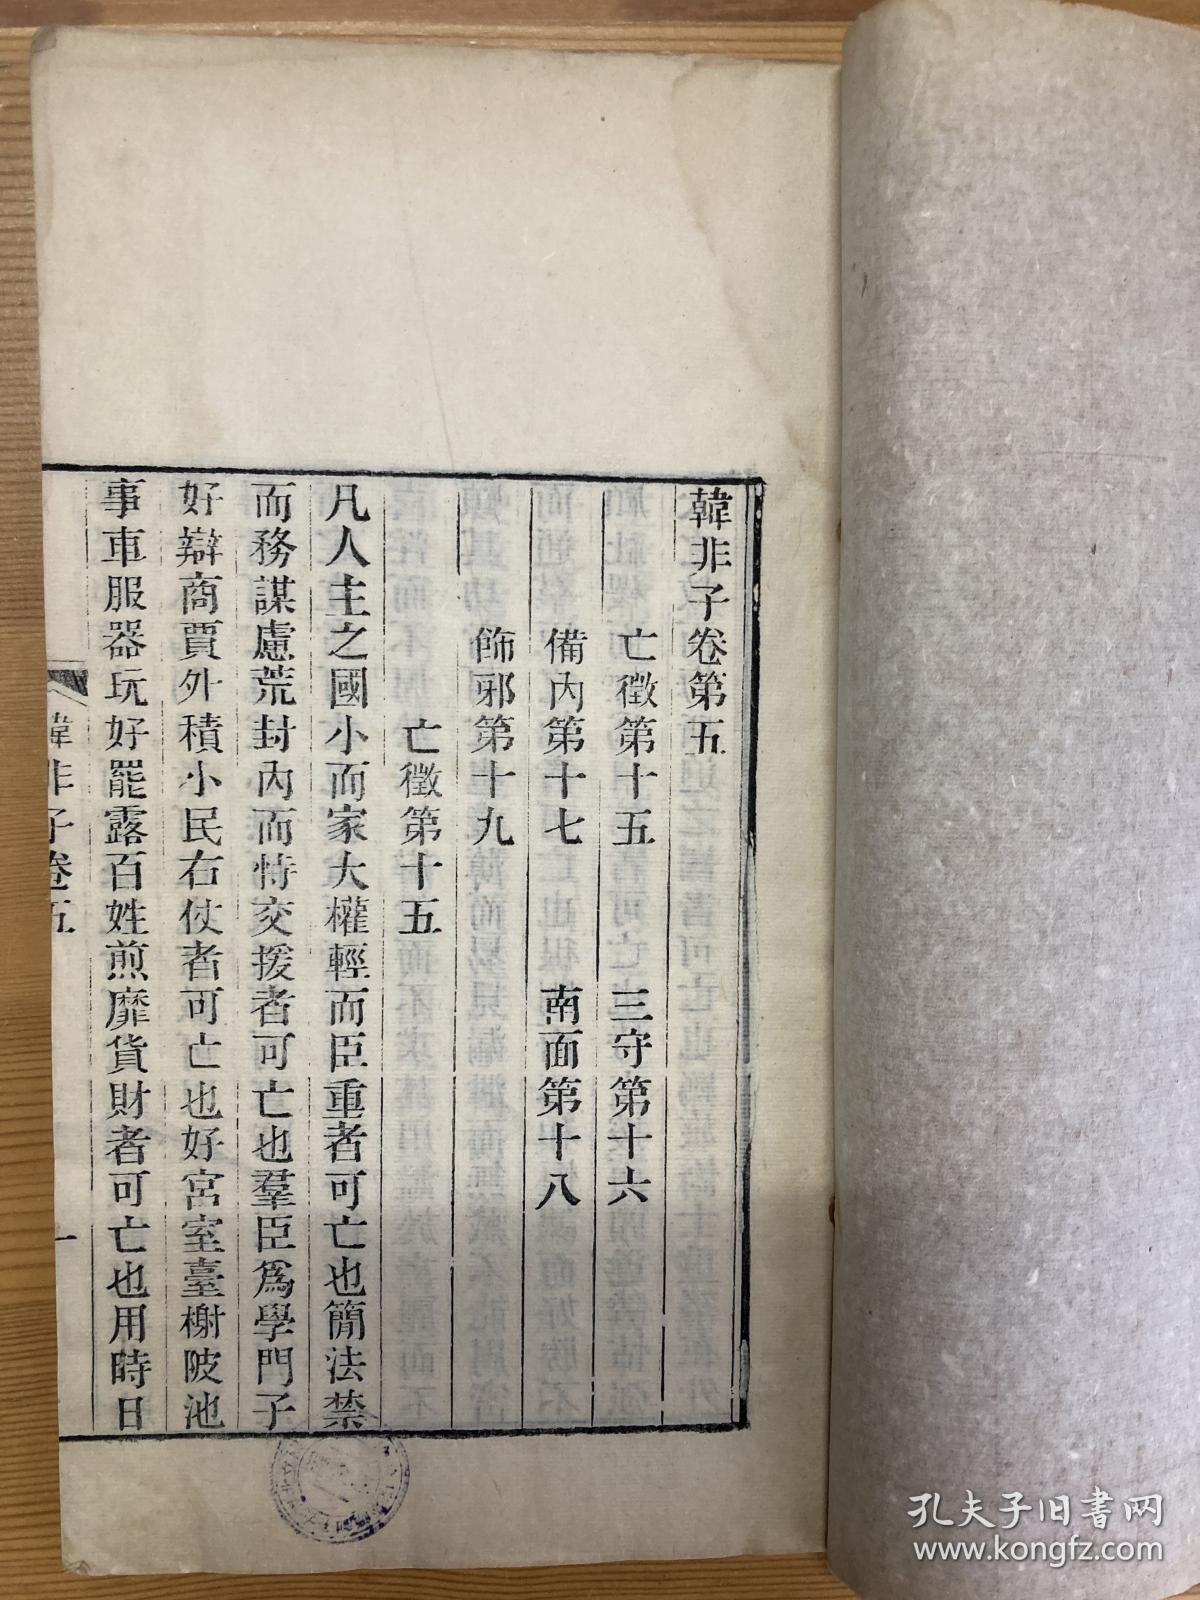 韓非子卷第五
亡徵第十五　三守第十六
備內第十七　南面第十八
飾邪第十九
亡徵第十五
凡人主之國小而家大權輕而臣重者可亡也簡法禁
而務謀慮荒封內而恃交援者可亡也羣臣爲學門子
好辯商賈外積小民右仗者可亡也好宮室臺榭陂池
事車服器玩好罷露百姓煎靡貨財者可亡也用時日
韓非子卷五
一
孔夫子旧书网
www.kongfz.com